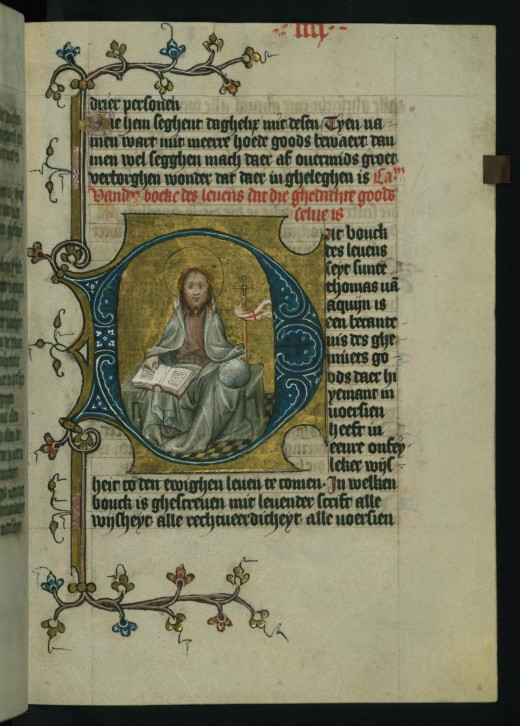 IIII
drier personen
Die hem seghent daghelix mit desen Tyen na
men wart mit meerre hoede goods bewaert dan
men wel segghen mach daer af ouermids groet
verborghen wonder dat daer in gheleghen is Cam
Vanden boeke des leuens dat die ghedichte goods
selue is
Dit bouck
des leuens
seyt sunte
thomas uā
aquijn is
een bekante
nis des ghe
mūets go
ods daer hi
yemant in
uoersien
heeft in
eenre onsey
leker wijs
heit to den ewighen leuen te comen. In welken
bouck is ghescreuen mit leuender scrift alle
wijsheyt alle rechtuerdicheyt alle uoersien